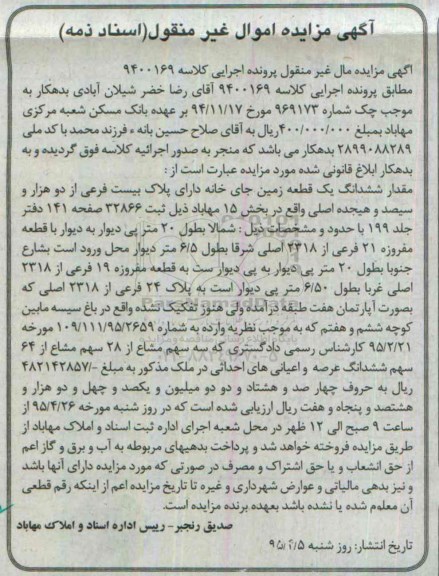 آگهی مزایده اموال غیر منقول(اسناد ذمه)
آگهی مزایده مال غیر منقول پرونده اجرایی کلاسه ۹۴۰۰۱۶۹
مطابق پرونده اجرایی کلاسه ۹۴۰۰۱۶۹ آقای رضا خضر شیلان آبادی بدهکار به
موجب چک شماره ۹۶۹۱۷۳ مورخ ۹۴/۱۱/۱۷ بر عهده بانک مسکن شعبه مرکزی
مهاباد بمبلغ ۴۰۰/۰۰۰/۰۰۰ریال به آقای صلاح حسین بانه ء فرزند محمد با کد ملی
۲۸۹۹۰۸۸۲۸۹ بدهکار می باشد که منجر به صدور اجرائیه کلاسه فوق گردیده و به
بدهکار ابلاغ قانونی شده مورد مزایده عبارت است از :
مقدار ششدانگ یک قطعه زمین جای خانه دارای پلاک بیست فرعی از دو هزار و
سیصد و هیجده اصلی واقع در بخش ۱۵ مهاباد ذیل ثبت ۳۲۸۶۶ صفحه ۱۴۱ دفتر
جلد ۱۹۹ با حدود و مشخصات ذیل : شمالا بطول ۲۰ متر پی دیوار به دیوار با قطعه
مفروزه ۲۱ فرعی از ۲۳۱۸ اصلی شرقا بطول ۶/۵ متر دیوار محل ورود است بشارع
جنوبا بطول ۲۰ متر پی دیوار به پی دیوار ست به قطعه مفروزه ۱۹ فرعی از ۲۳۱۸
اصلی غربا بطول ۶/۵۰ متر پی دیوار است به پلاک ۲۴ فرعی از ۲۳۱۸ اصلی که
بصورت آپارتمان هفت طبقه درآمده ولی هنوز تفکیک نشده واقع در باغ سیسه مابین
کوچه ششم و هفتم که به موجب نظریه وارده به شماره ۱۰۹/۱۱۱/۹۵/۲۶۵۹ مورخه
۹۵/۲/۲۱ کارشناس رسمی دادگستری که سه سهم مشاع از ۲۸ سهم مشاع از ۶۴
سهم ششدانگ عرصه و اعیانی های احداثی در ملک مذکور به مبلغ -/۴۸۲۱۴۲۸۵۷
ریال به حروف چهار صد و هشتاد و دو میلیون و یکصد و چهل و دو هزار و
هشتصد و پنجاه و هفت ریال ارزیابی شده است که در روز شنبه مورخه ۹۵/۴/۲۶ از
ساعت ۹ صبح الی ۱۲ ظهر در محل شعبه اجرای اداره ثبت اسناد و املاک مهاباد از
طریق مزایده فروخته خواهد شد و پرداخت بدهیهای مربوطه به آب و برق و گاز اعم
از حق انشعاب و یا حق اشتراک و مصرف در صورتی که مورد مزایده دارای آنها باشد
و نیز بدهی مالیاتی و عوارض شهرداری و غیره تا تاریخ مزایده اعم از اینکه رقم قطعی
آن معلوم شده یا نشده باشد بعهده برنده مزایده است.
صدیق رنجبر- رییس اداره اسناد و املاک مهاباد
تاریخ انتشار: روز شنبه